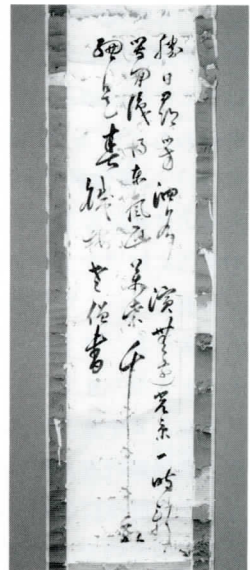 勝日尋芳泗水濱無邊光景一時新
等閒識得東風面萬紫千紅
總是春 老僧書